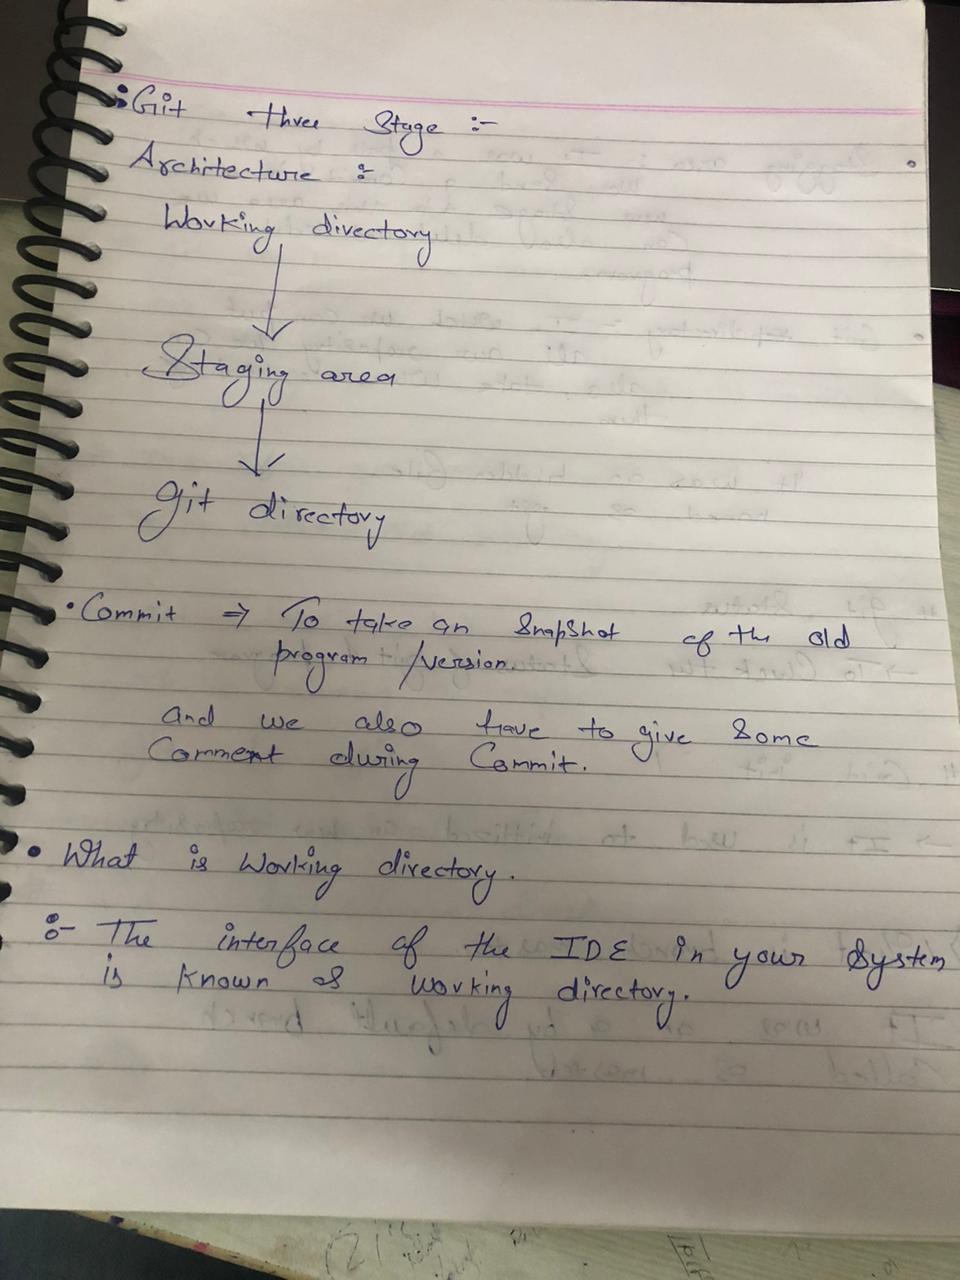 :Git three Stage :-
Architecture :-
Working directory
Staging area
git directory
• Commit ⇒ To take an Snapshot of the old
program /version
and we also have to give some
Comment during Commit.
• What is Working directory.
:- The interface of the IDE in your System
is known as working directory.